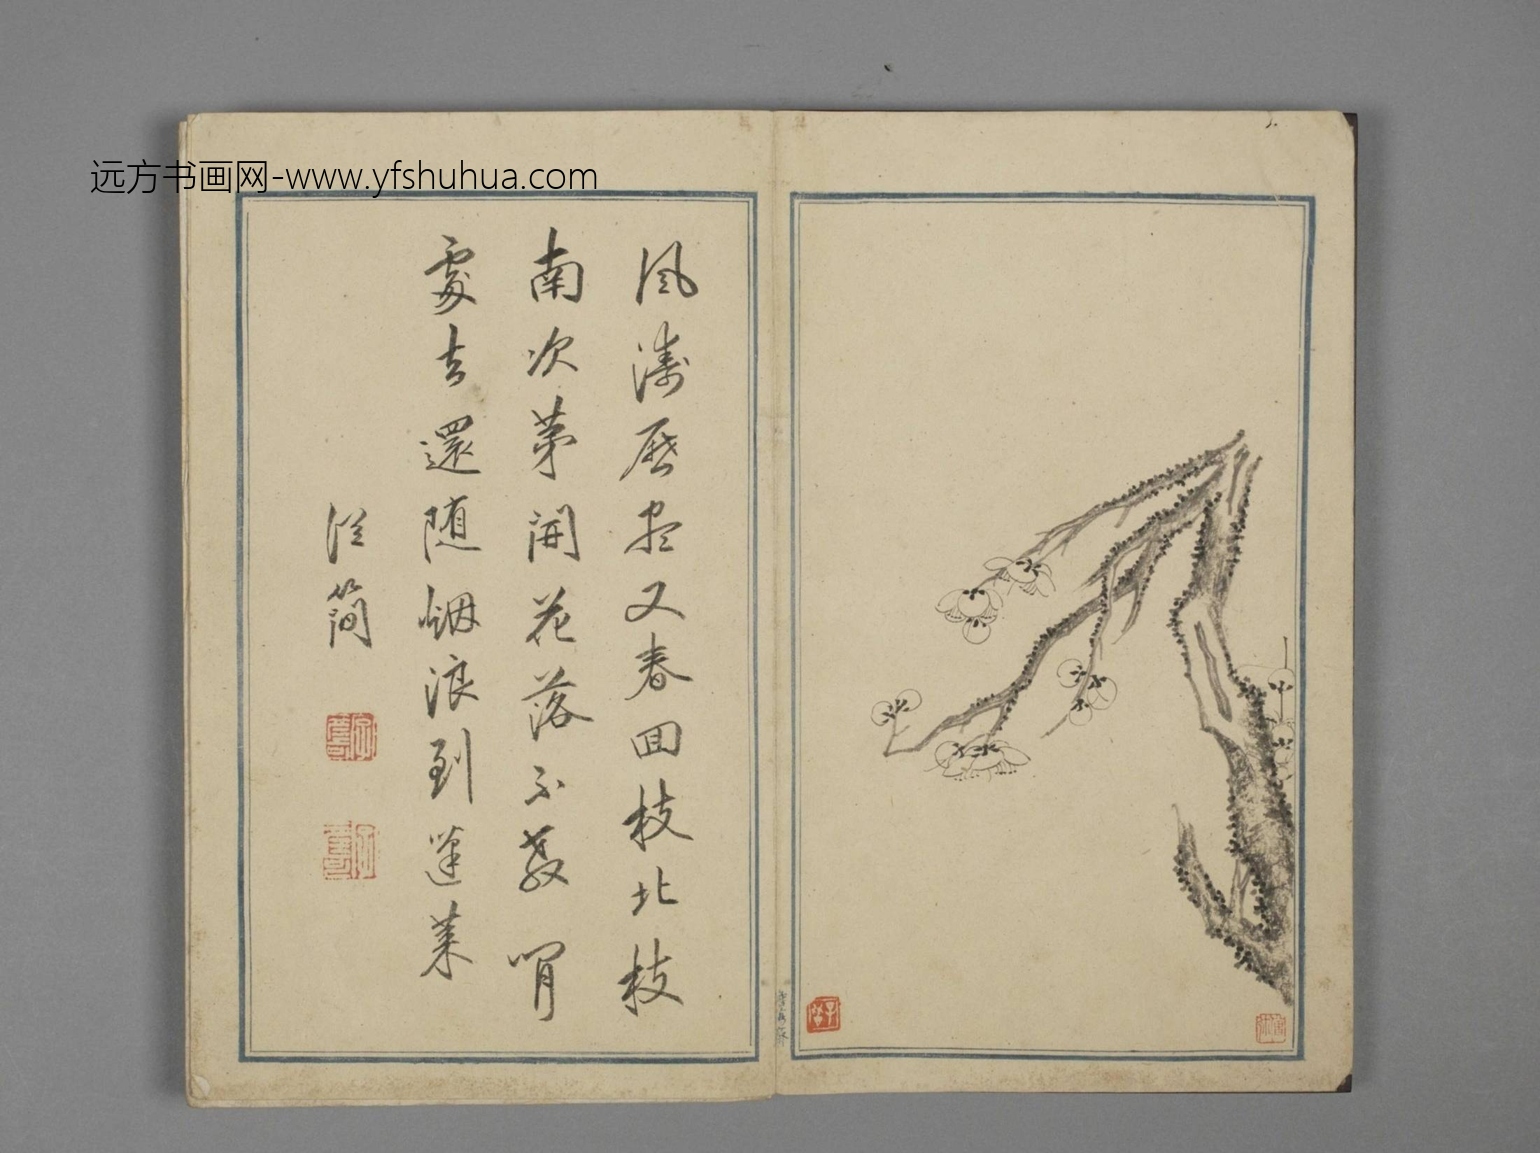 远方书画网-www.yfshuhua.com
风涛歷尽又春回枝北枝
南次第開花落不教閒
處去還随烟浪到蓬莱